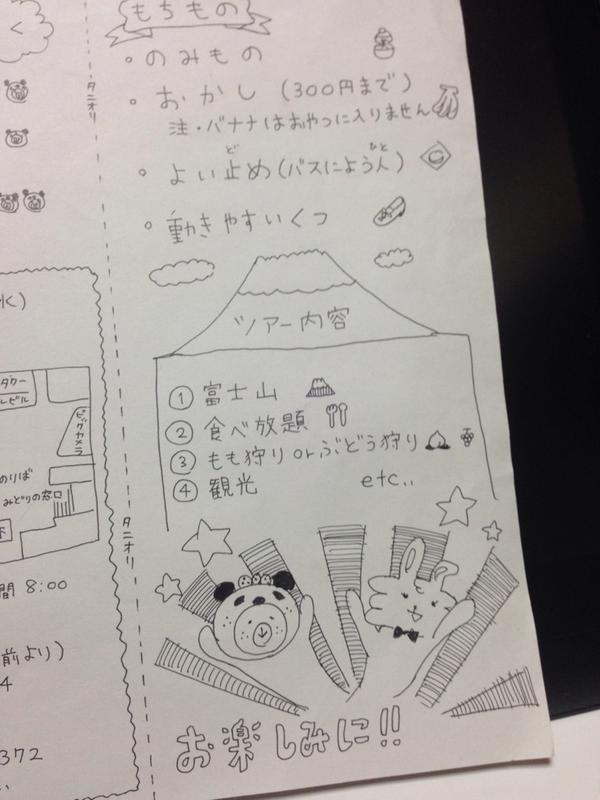 く
もちもの
タニオリ
・のみもの
・おかし（300円まで）
注・バナナはおやつに入りません
・よい止め（バスによう人）
ど
ひと
・動きやすいくつ
ツアー内容
① 富士山
② 食べ放題
③ もも狩り or ぶどう狩り
④ 観光 etc..
お楽しみに!!
タニオリ
水）
タワー
ルビル
ビックカメラ
のりば
みどりの窓口
間 8:00
前より）
4
372